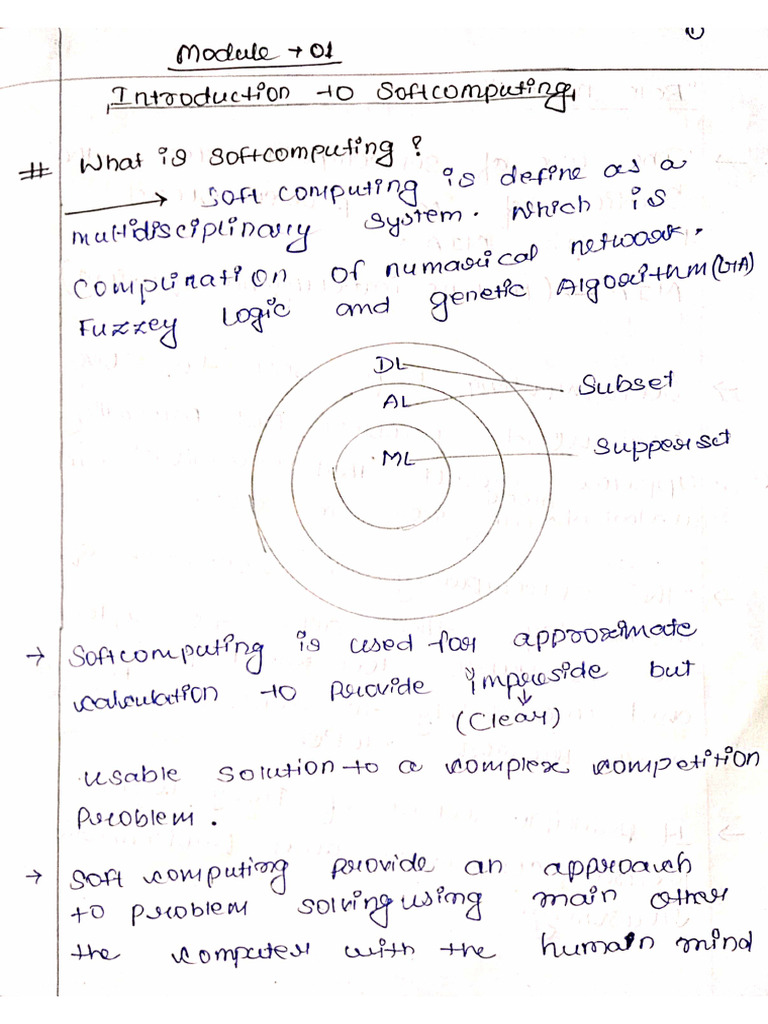 1
Module → 01
Introduction to Softcomputing
# What is softcomputing ?
→ Soft computing is define as a
multidisciplinary system. Which is
complination of numarical network,
Fuzzey Logic and genetic Algorithm (GA)
DL
AL
Subset
ML
Supperset
→ Softcomputing is used for approximate
calculation to provide impreside but
(Clear)
usable solution to a complex competition
Problem.
→ Soft computing provide an approach
to problem solving using main other
the computer with the human mind